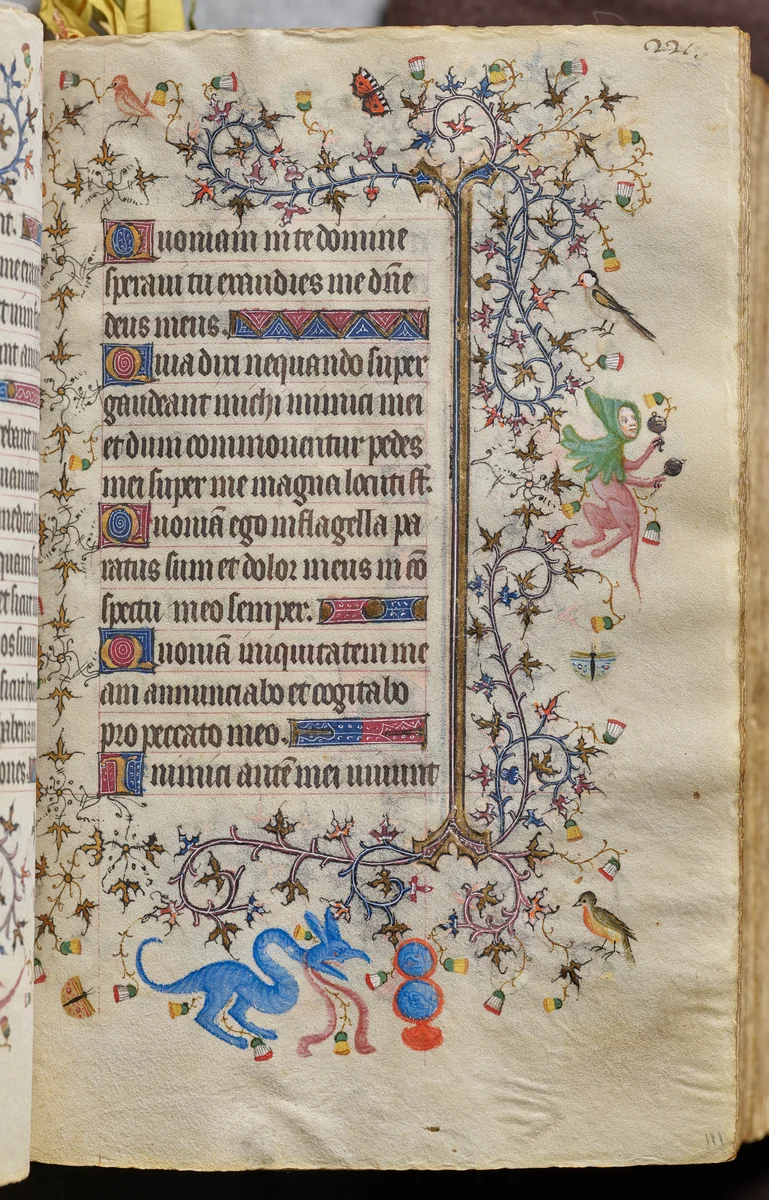 221.
Quoniam in te domine
speraui tu exaudies me dñe
deus meus.
Quia dixi nequando super
gaudeant michi inimici mei
et dum commouentur pedes
mei super me magna locuti st̄.
Quoniā ego in flagella pa
ratus sum et dolor meus in cō
spectu meo semper.
Quoniā iniquitatem me
am annunciabo et cogitabo
pro peccato meo.
Inimici autē mei uiuunt